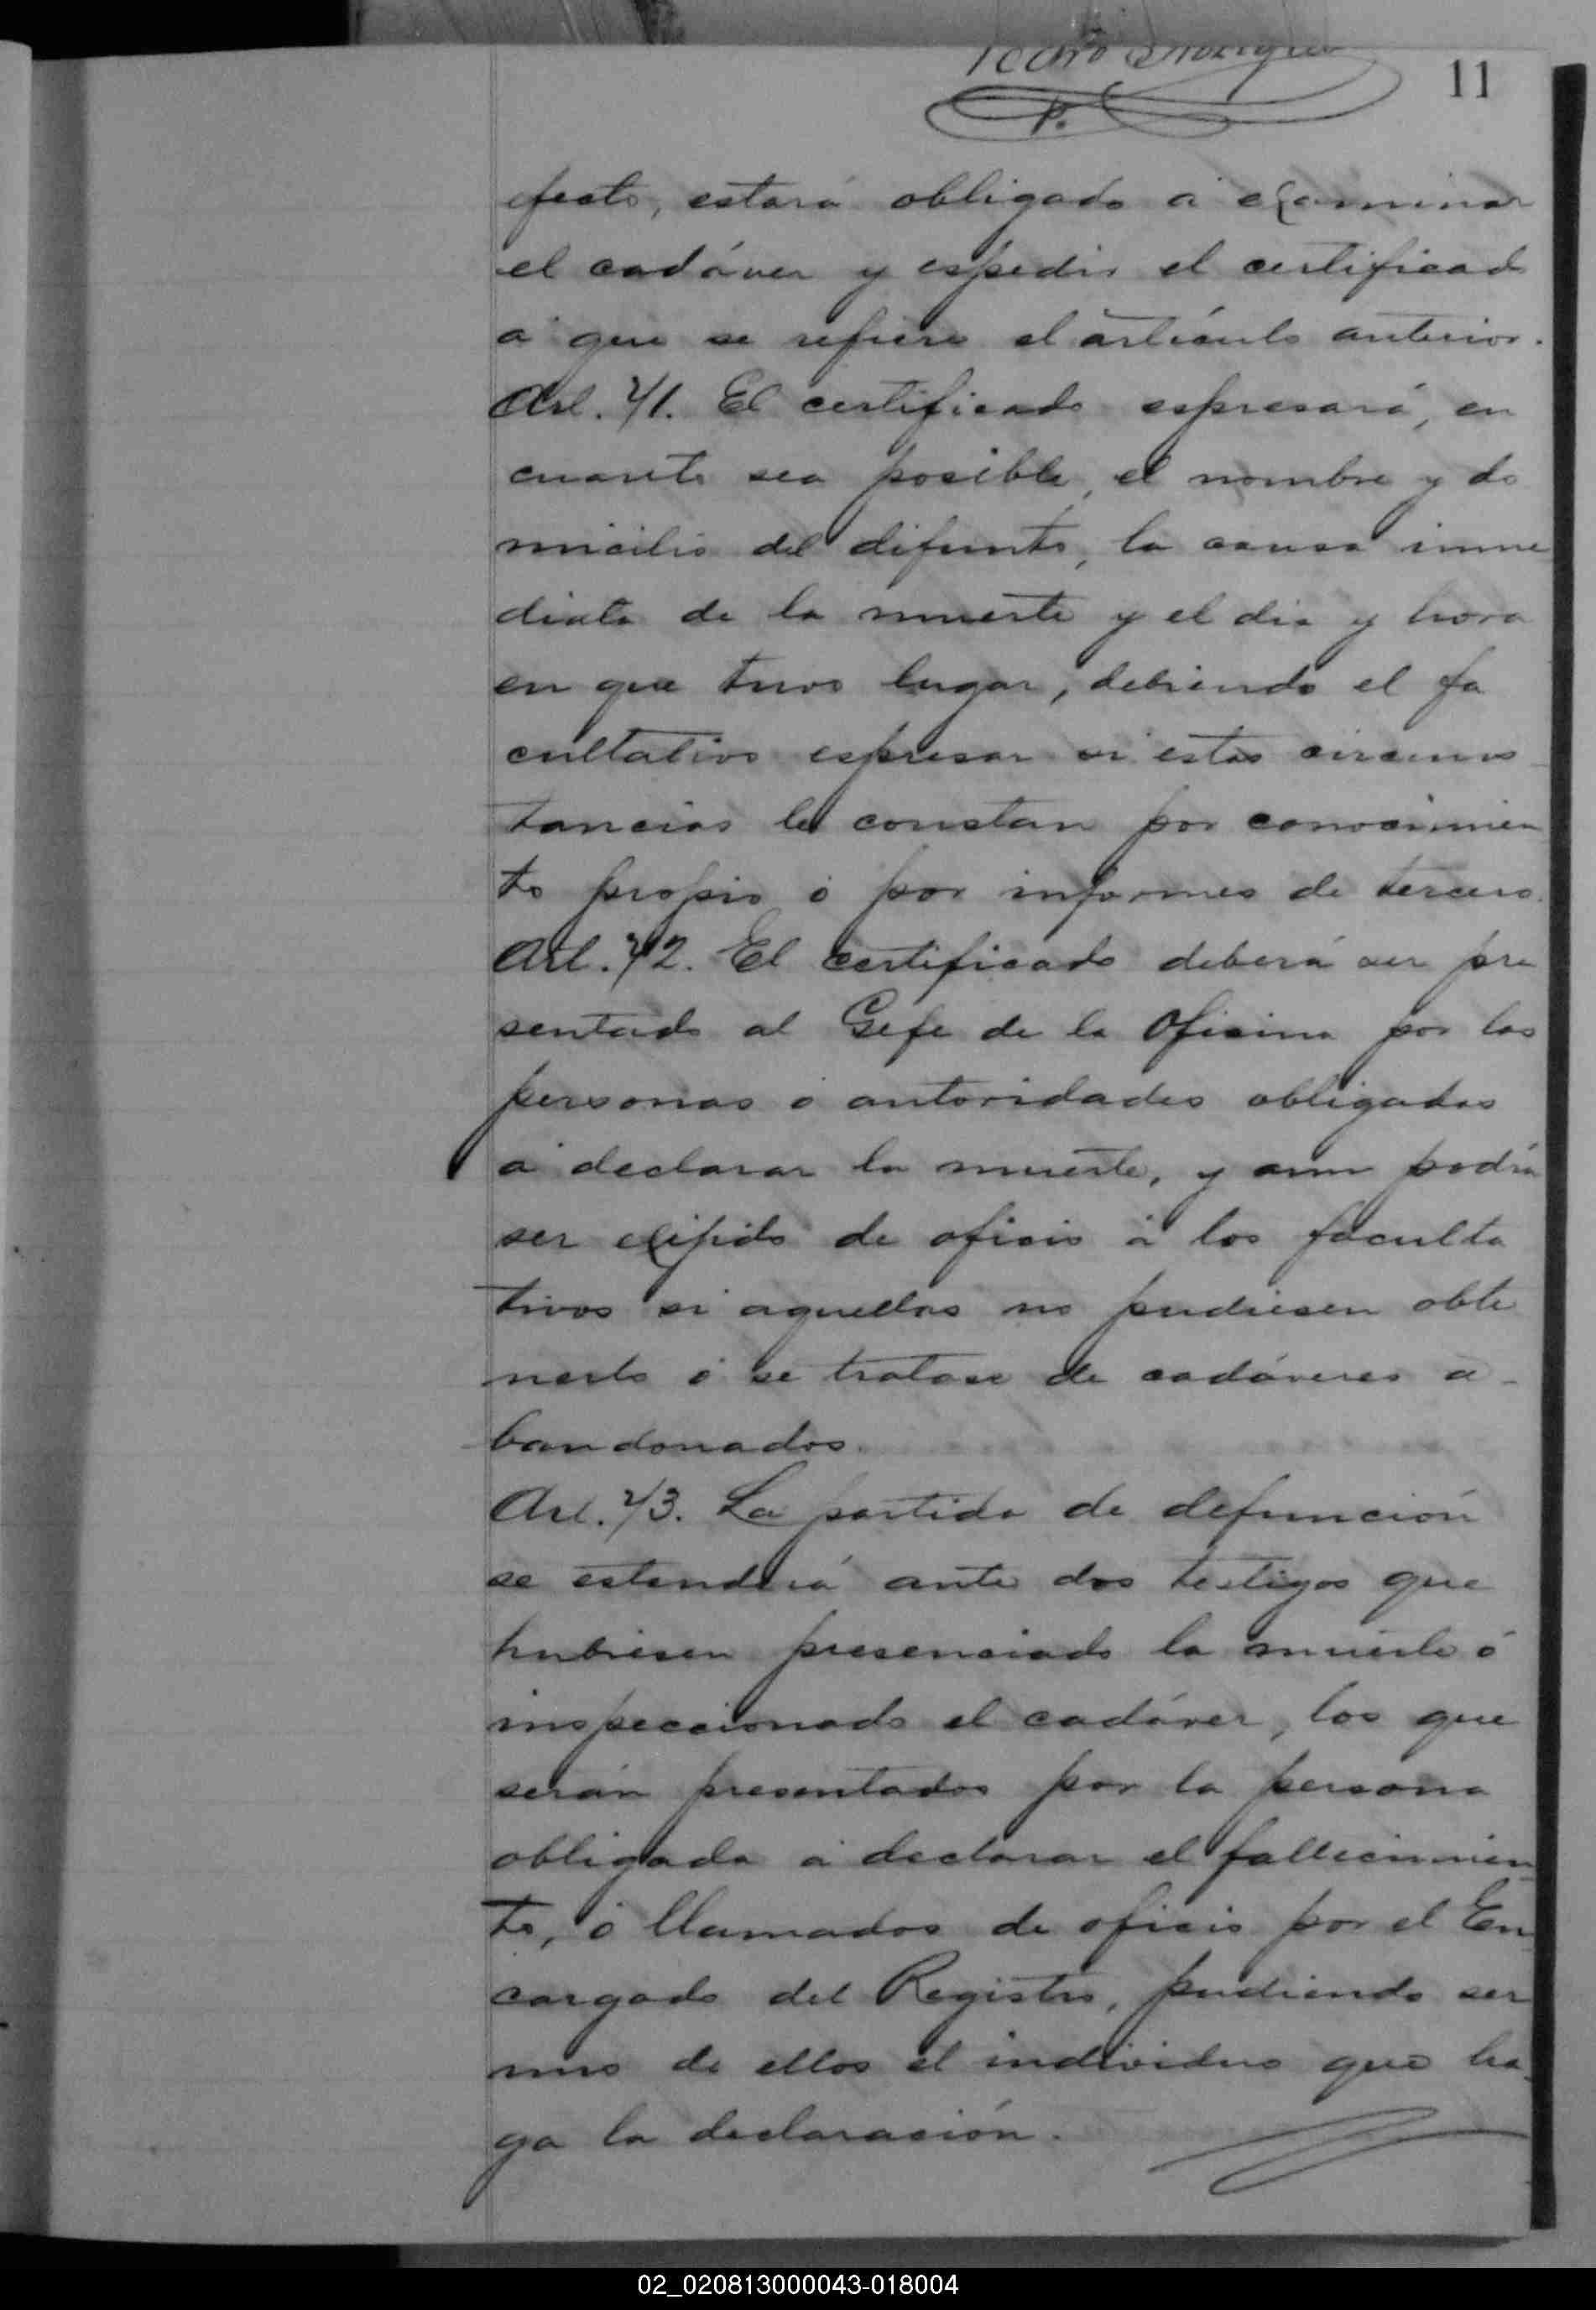 Pedro
P.
11
efecto, estará obligado á examinar
el cadáver y espedir el certificado
á que se refiere el artículo anterior.
Art. 71. El certificado espresará, en
cuanto sea posible, el nombre y do
micilio del difunto, la causa inme
diata de la muerte y el dia y hora
en que tuvo lugar, debiendo el fa
cultativo espresar si estas circuns
tancias le constan por conocimien
to propio ó por informes de tercero.
Art. 72. El certificado deberá ser pre
sentado al Gefe de la Oficina por las
personas ó autoridades obligadas
á declarar la muerte, y aun podrá
ser exijido de oficio á los faculta
tivos si aquellas no pudiesen obte
nerlo ó se tratase de cadáveres a-
bandonados.
Art. 73. La partida de defunción
se estenderá ante dos testigos que
hubiesen presenciado la muerte ó
inspeccionado el cadáver, los que
serán presentados por la persona
obligada á declarar el fallecimien
to, ó llamados de oficio por el En
cargado del Registro, pudiendo ser
uno de ellos el individuo que ha
ga la declaración.
02_020813000043-018004